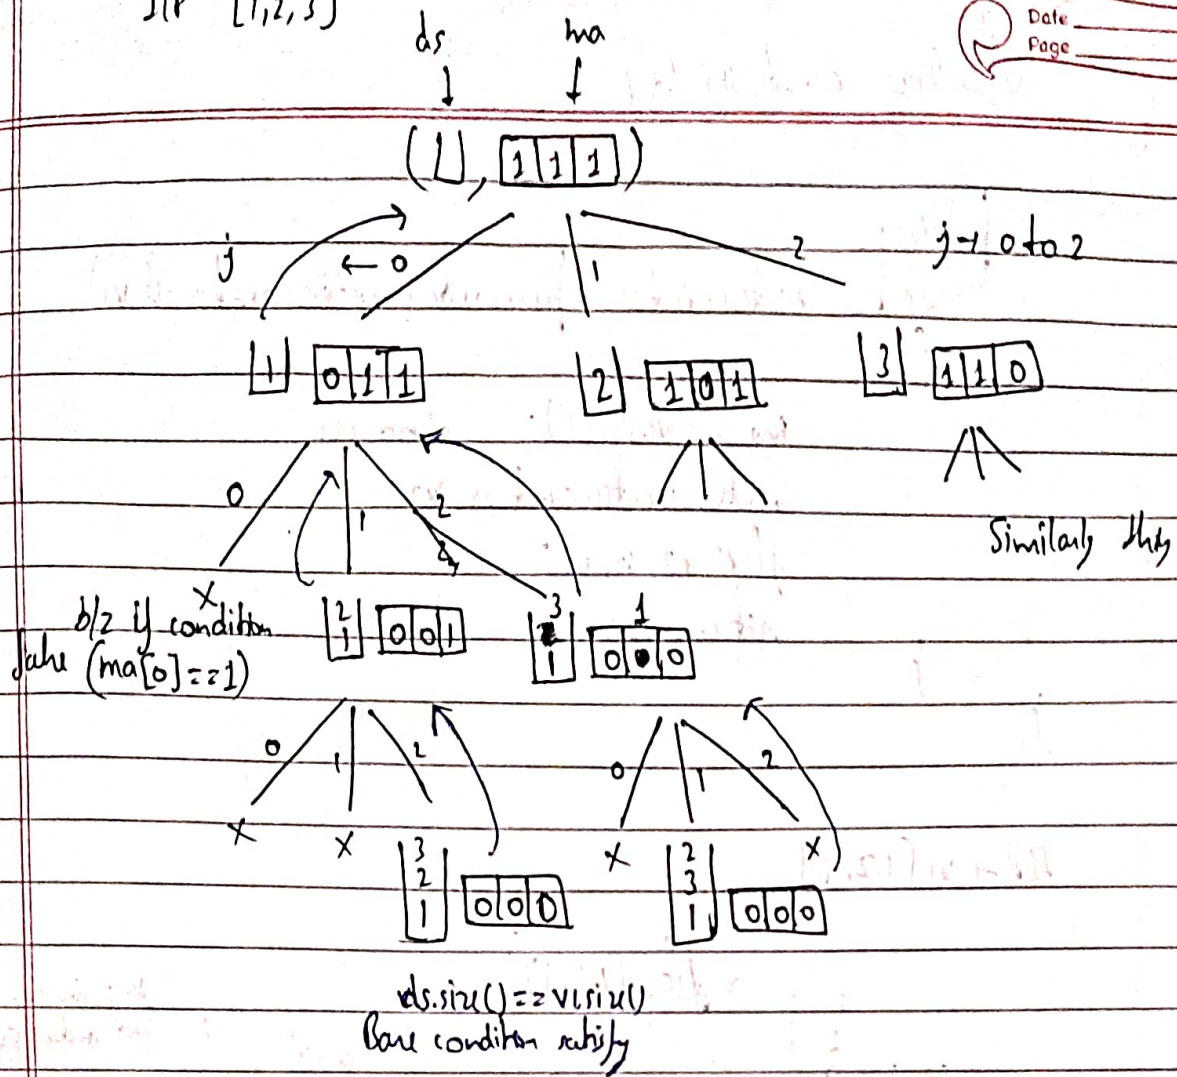 I/P [1,2,3]
Date
Page
ds ma
( , 1 1 1 )
j ← 0 1 2 j → 0 to 2
1 0 1 1 2 1 0 1 3 1 1 0
0 1 2
Similarly this
X
b/z if condition
false (ma[0]==1)
2 1 0 0 1 3 1 0 1 0
0 1 2 0 1 2
X X X X
3 2 1 0 0 0 2 3 1 0 0 0
ds.size()==v1.size()
Base condition satisfy